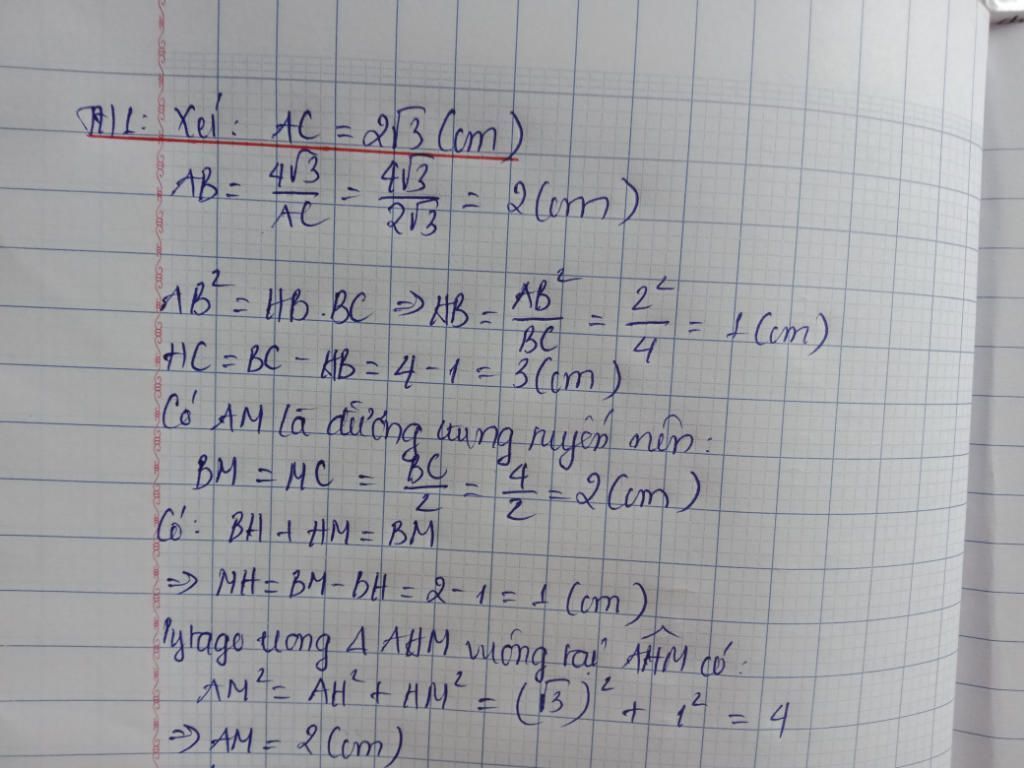 TH1: Xét: AC = 2√3 (cm)
AB = 4√3/AC = 4√3/2√3 = 2 (cm)
AB² = HB.BC ⇒ HB = AB²/BC = 2²/4 = 1 (cm)
HC = BC - HB = 4 - 1 = 3 (cm)
Có AM là đường trung tuyến nên:
BM = MC = BC/2 = 4/2 = 2 (cm)
Có: BH + HM = BM
⇒ MH = BM - BH = 2 - 1 = 1 (cm)
Pytago trong Δ AHM vuông tại AHM có:
AM² = AH² + HM² = (√3)² + 1² = 4
⇒ AM = 2 (cm)